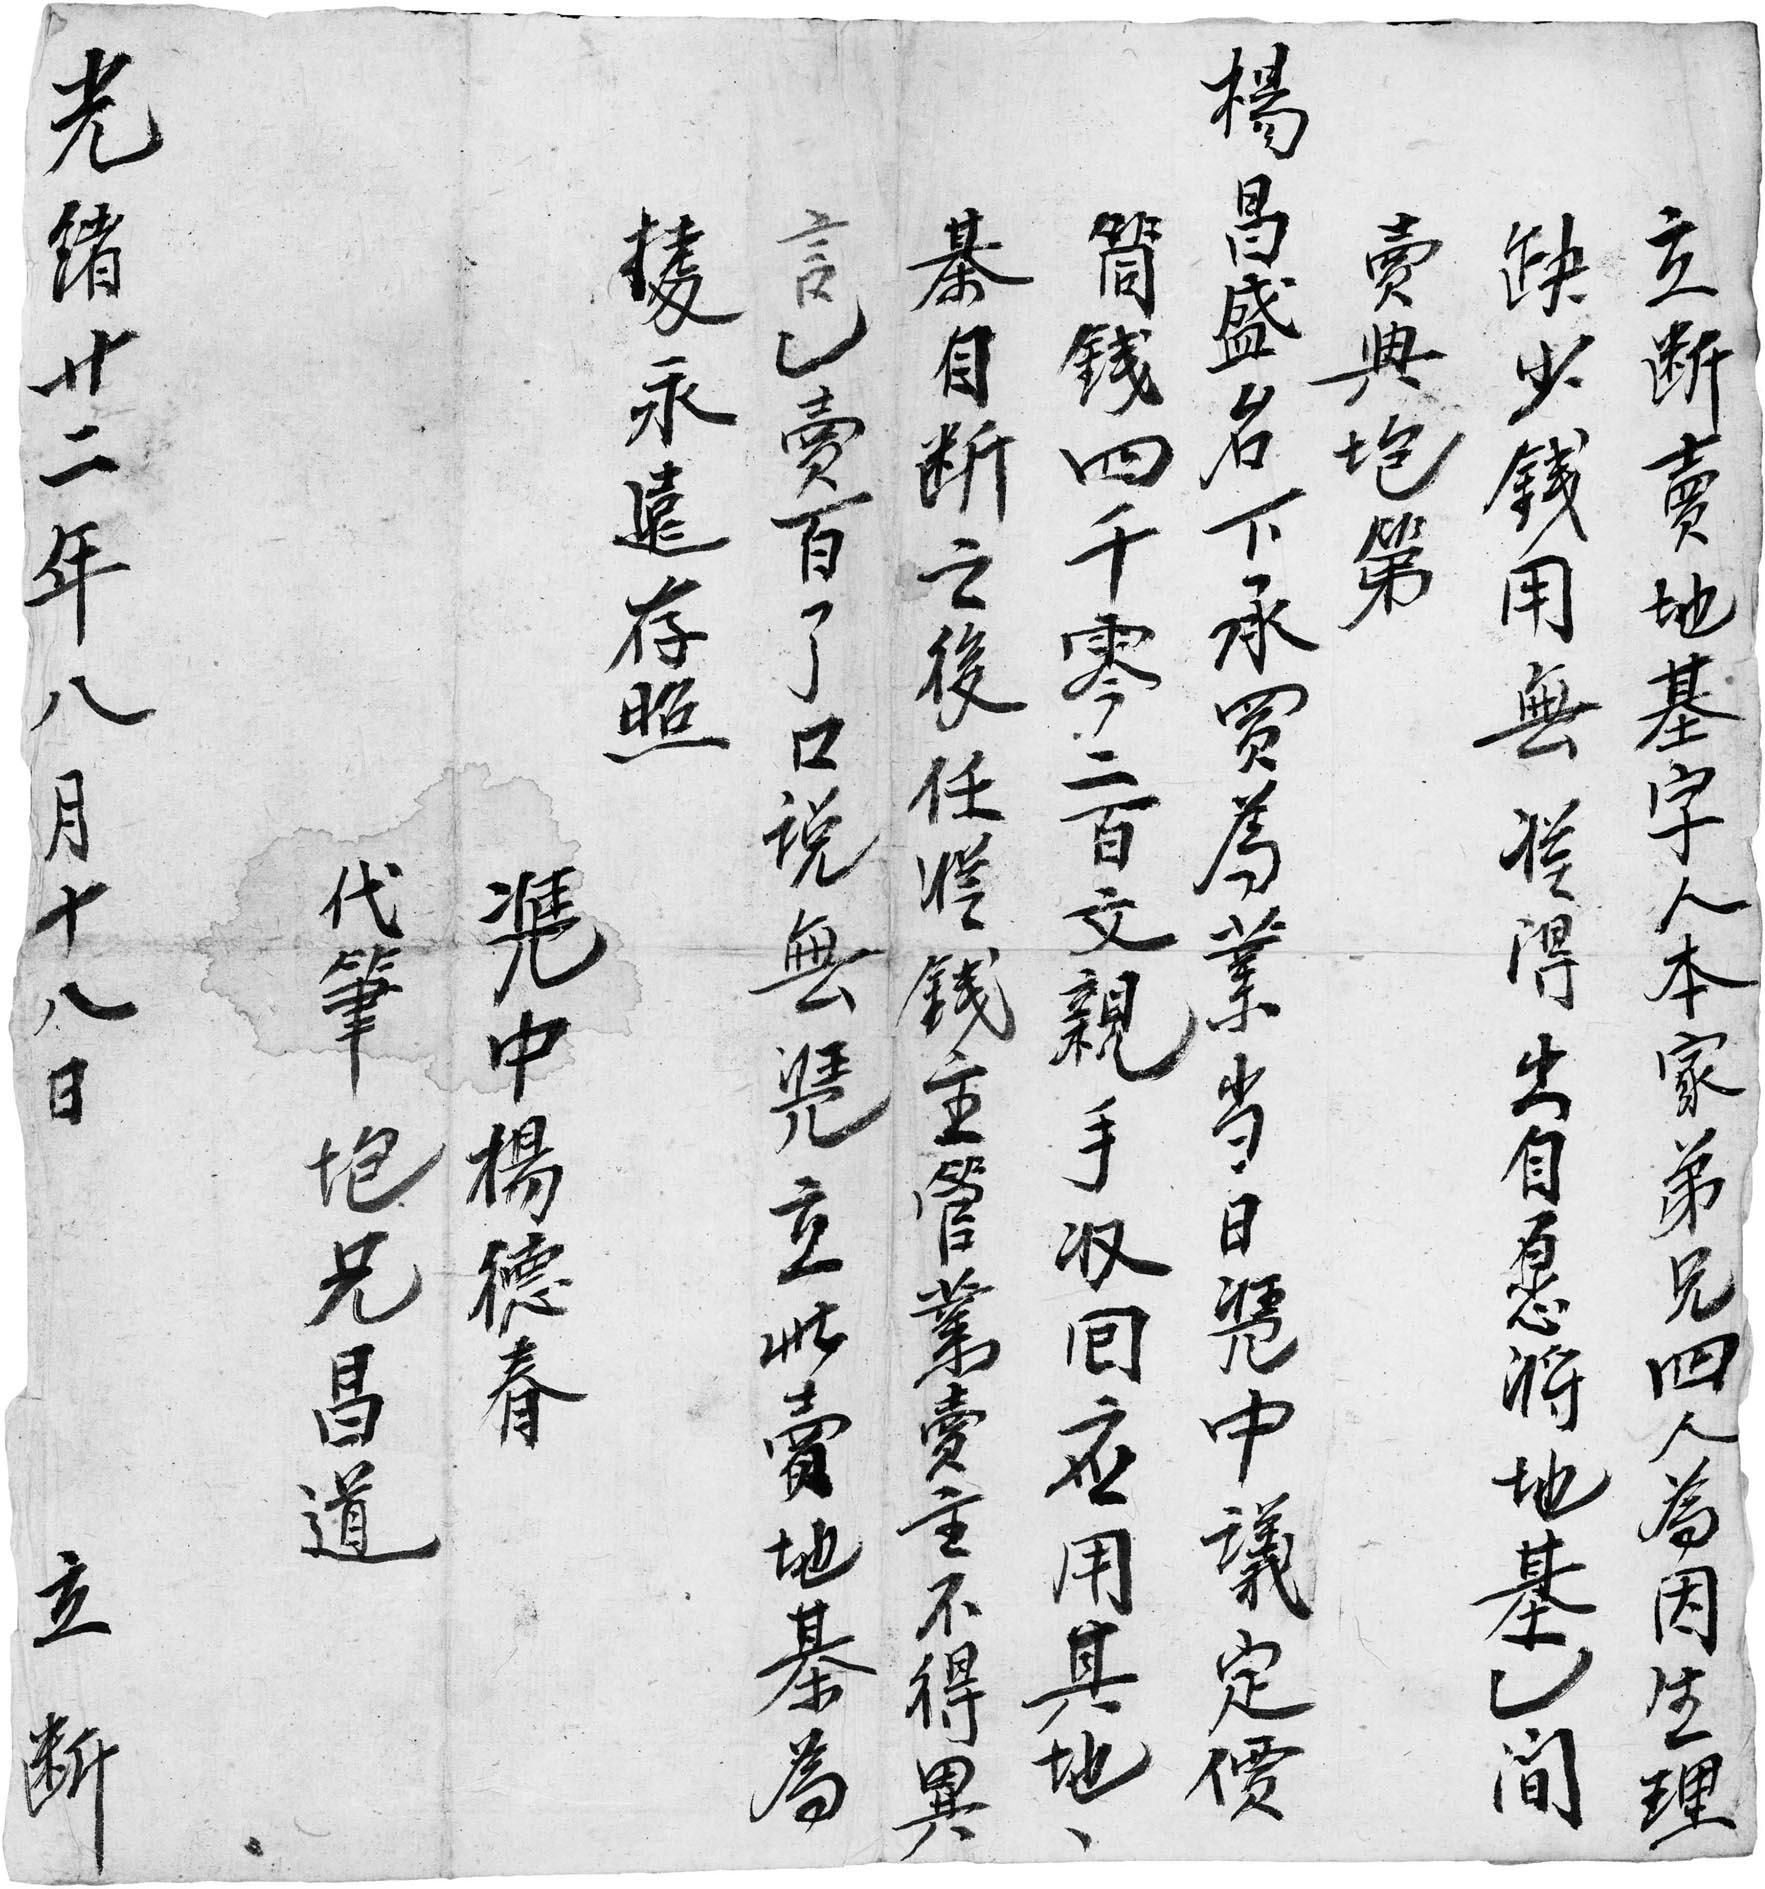 立断賣地基字人本家弟兄四人為因生理
缺少錢用無從得出自愿將地基乙间
賣與垉第
楊昌盛名下承買為業当日凴中議定價
筒錢四千零二百文親手収回应用其地
基自断之後任從錢主管業賣主不得異
言乙賣百了口説無凴立此賣地基為
援永遠存照
凴中楊德春
代筆垉兄昌道
光緒廿二年八月十八日 立断